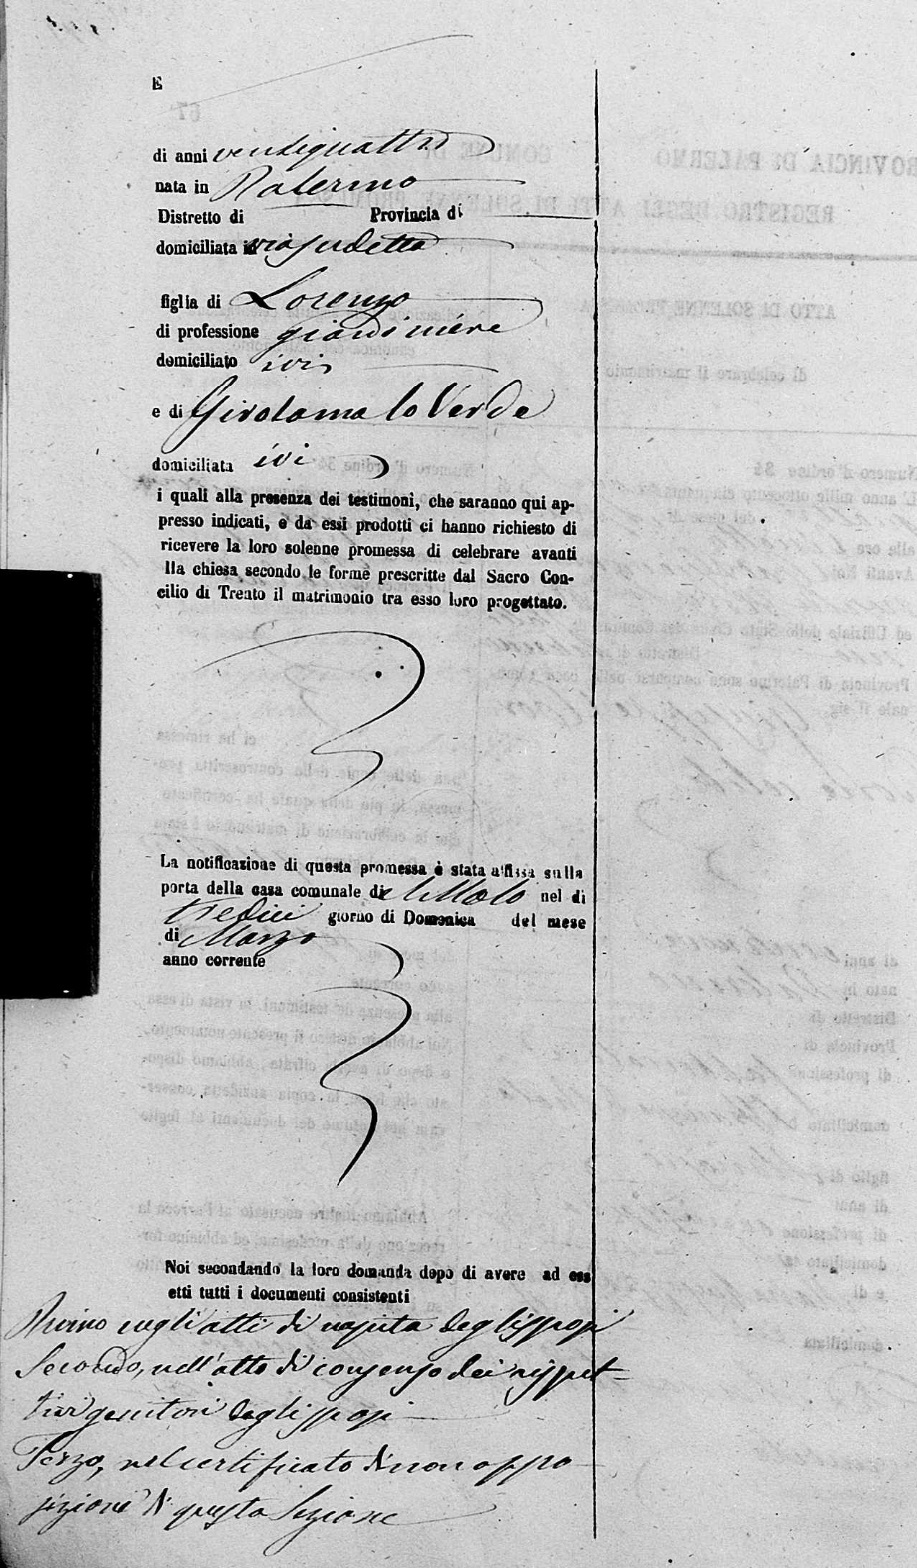 E
di anni ventiquattro
nata in Palermo
Distretto di Provincia di
domiciliata in via sudetta
figlia di Lorenzo
di professione giardiniere
domiciliato ivi
e di Girolama lo Verde
domiciliata ivi
i quali alla presenza dei testimoni, che saranno qui ap-
presso indicati, e da essi prodotti ci hanno richiesto di
ricevere la loro solenne promessa di celebrare avanti
lla chiesa secondo le forme prescritte dal Sacro Con-
cilio di Trento il matrimonio tra esso loro progettato.
La notificazione di questa promessa è stata affissa sulla
porta della casa comunale di Molo nel di
tredici giorno di Domenica del mese
di Marzo
anno corrente
Noi secondando la loro domanda dopo di avere ad ess
etti tutti i documenti consistenti
negli atti di nascita degli sposi
Secondo, nell'atto di consenso dei rispet-
tivi genitori degli sposi
Terzo, nel certificato di non oppo
sizione di questa Sezione